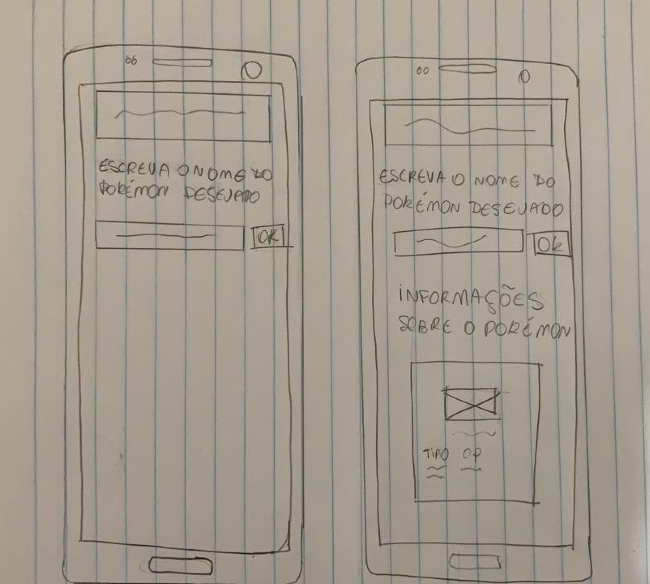 ESCREVA O NOME DO
POKÉMON DESEJADO
OK
ESCREVA O NOME DO
POKÉMON DESEJADO
OK
INFORMAÇÕES
SOBRE O POKÉMON
TIPO CP